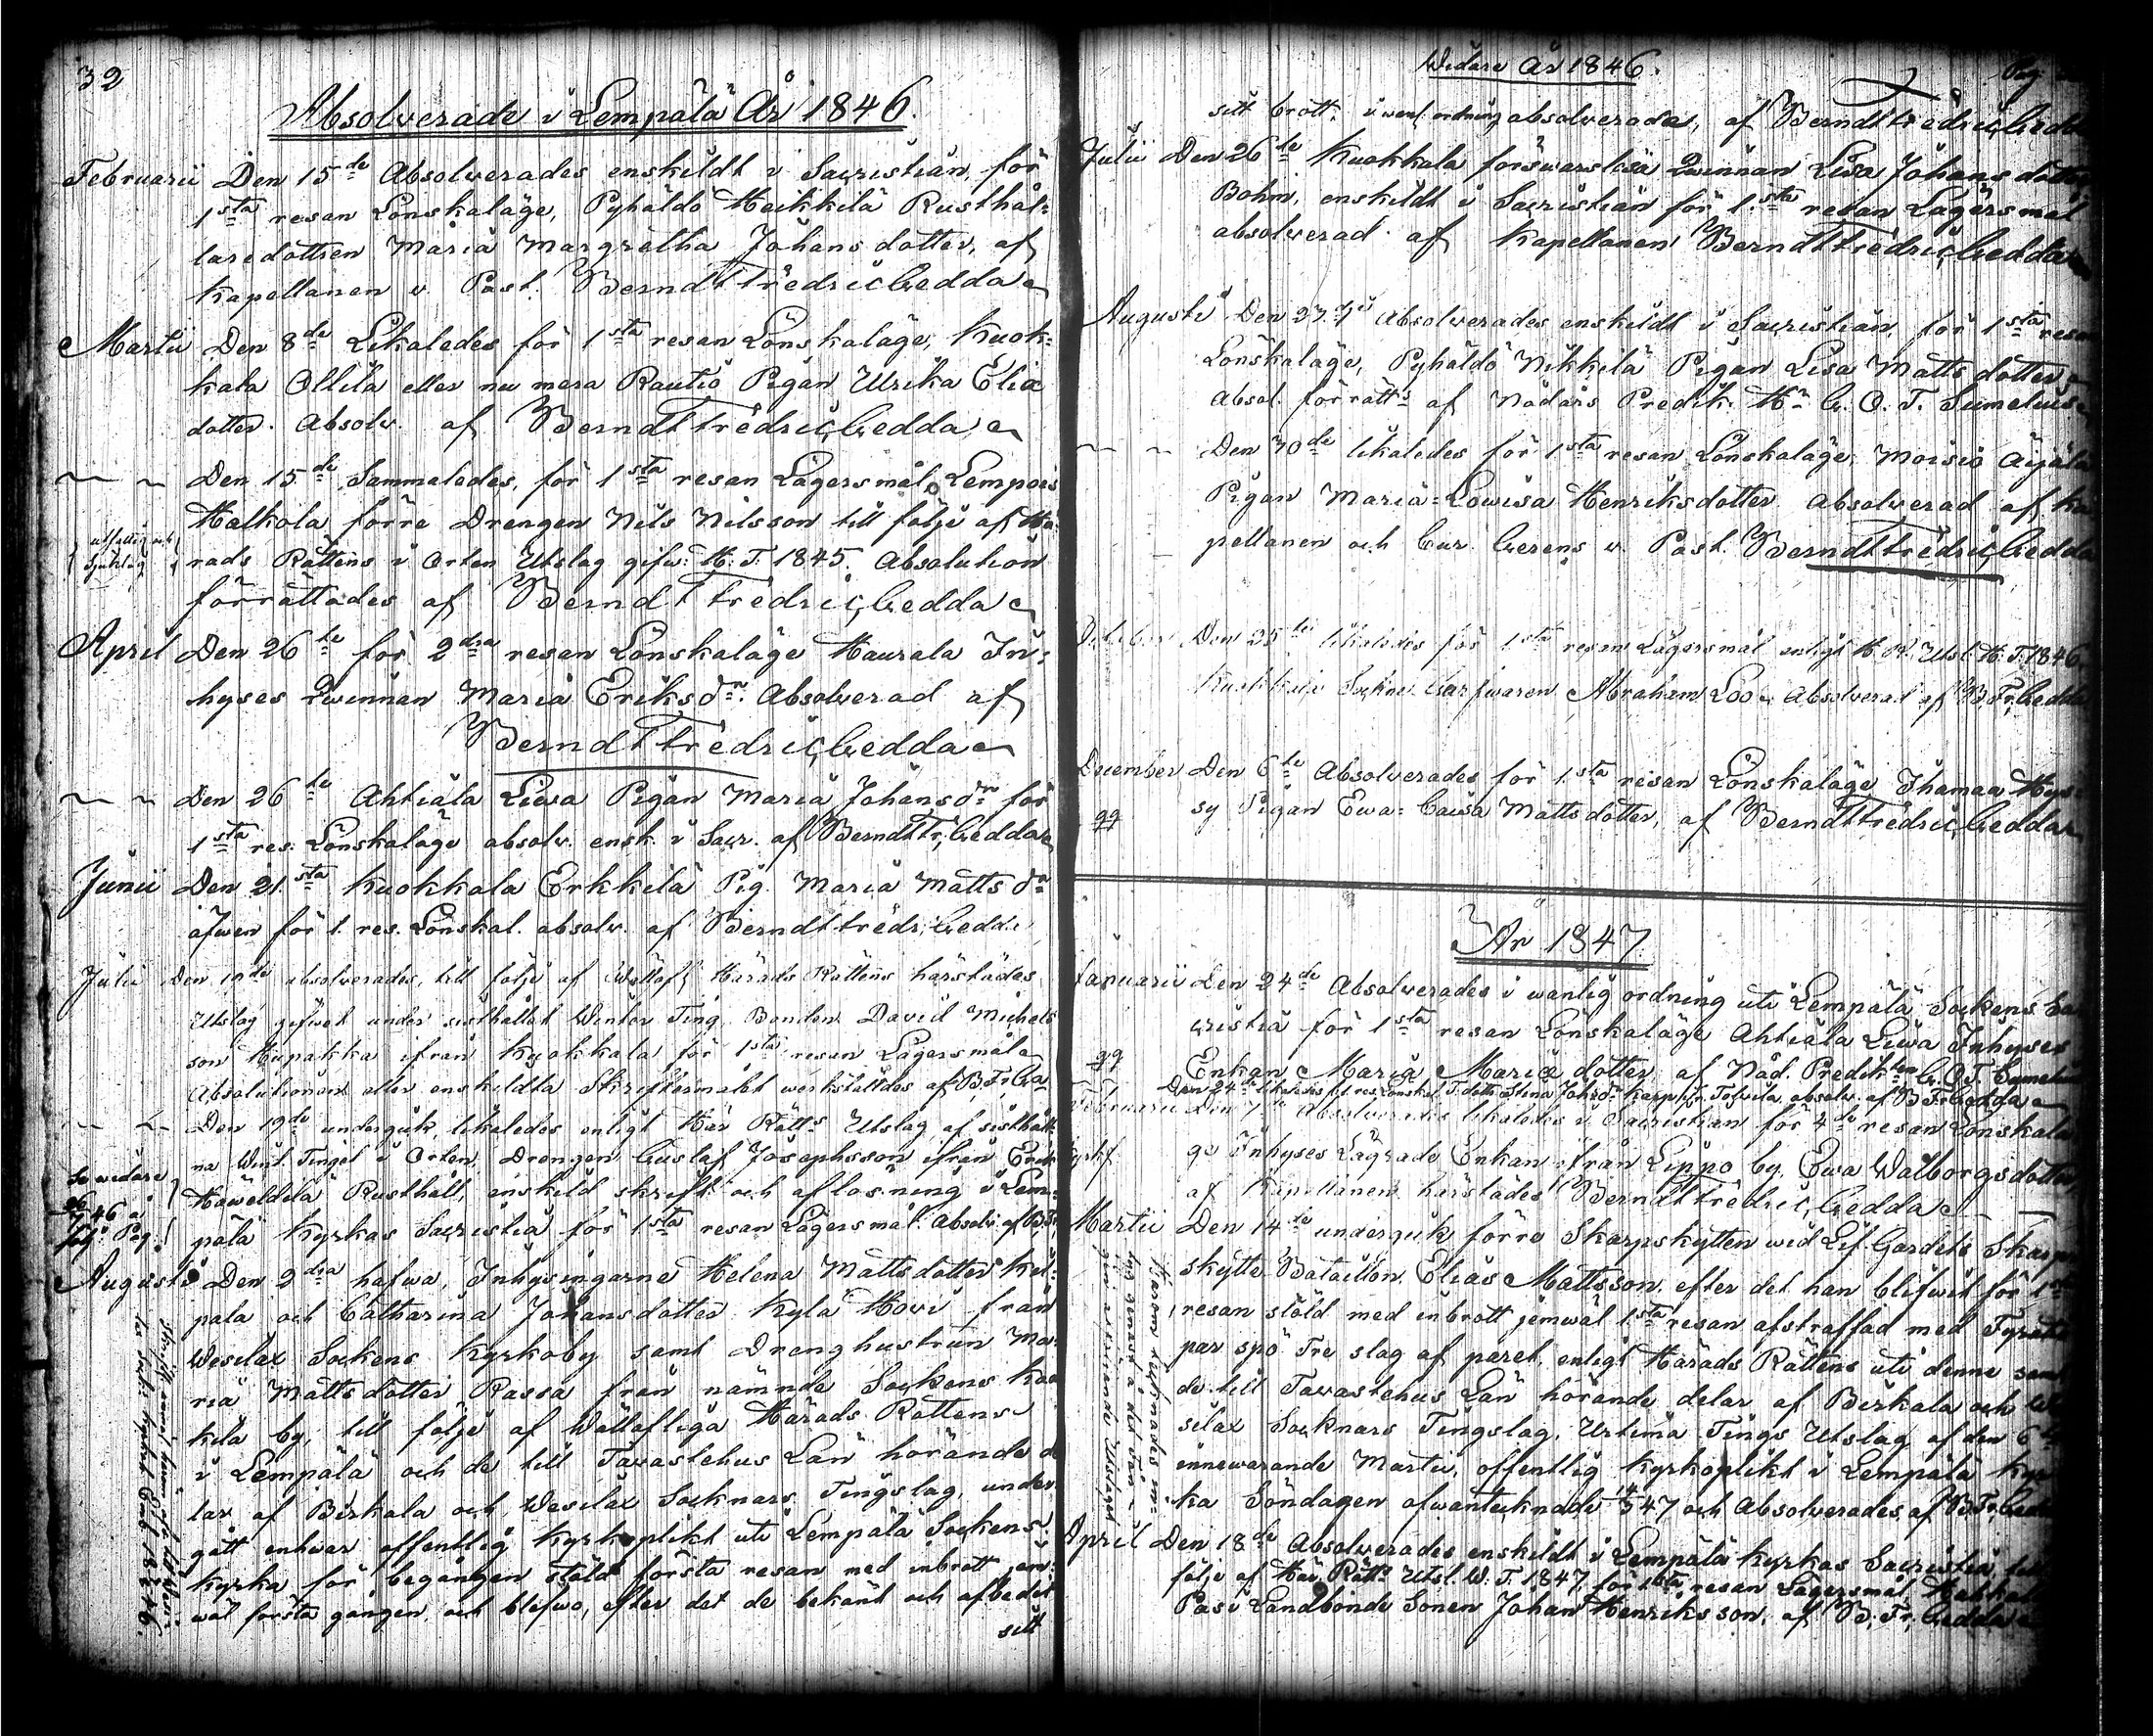 32
Absolverade i Lempälä År 1846.
Februarii Den 15de Absolverades enskildt i Sacristian, för
1sta resan Lönskaläge, Pyhäldö Heikkilä Rusthål=
laredottren Maria Margretha Johans dotter, af
Kapellanen v. Past. Berndt Fredric Gedda
Martii Den 8de Likaledes för 1sta resan Lönskaläge, Kuok=
kala Ollila eller nu mera Rautio Pigan Ulrika Elia
dotter. Absolv. af Berndt Fredric Gedda
~ ~ Den 15de Sammaledes, för 1sta resan Lägersmål, Lempois
Halkola förre Drengen Nils Nilsson till följe af Hä=
rads Rättens i Orten Utslag gifw. H. T. 1845. Absolution
förrättades af Berndt Fredric Gedda
April Den 26te för 2dra resan Lönskaläge Haurala In=
hyses Qwinnan Maria Eriks dr. Absolverad af
Berndt Fredric Gedda
~ ~ Den 26te Ahtiala Liwa Pigan Maria Johans dr för
1sta res. Lönskaläge absolv. ensk. i Sacr. af Berndt Fr. Gedda
Junii Den 21sta Kuokkala Erkkilä Pig. Maria Matts dr
äfwen för 1. res. Lönskal. absolv. af Berndt Fredr. Gedda
Julii Den 19de absolverades, till följe af Wällofl. Härads Rättens härstädes
Utslag gifwet under sisthållet Winter Ting Bonden David Michels
son Hupakka ifrån Kuokkala för 1sta resan Lägersmål
Absolutionen eller enskildta Skriftermålet werkställdes af B. Fr. Ga
~ ~ Den 19de undergick likaledes enligt Här Rätts Utslag af sisthåll
na Wint. Tinget i Orten Drengen Gustaf Josephsson ifrån
Rusthåll, enskild skrift och aflösning i Lem=
pälä Kyrkas Sacristia för 1sta resan Lägersmål. Absolv. af B. Fr.
Se widare
46 å
följ. Pag.
Augusti Den 2dra hafwa, Inhysingarne Helena Mattsdotter
pala och Catharina Johansdotter Kylä Howi från
Wesilax Sockens Kyrkoby samt Drenghustrun Ma=
ria Mattsdotter Rassa från nämnde Sockens
kila by, till följe af Wällofliga Härads Rättens
i Lempälä och de till Tavastehus Län hörande de
lar af Birkala och Wesilax Socknars Tingslag, under
gått enhwar offentlig Kyrkoplikt uti Lempälä Sockens
Kyrka för begången stöld första resan med inbrott jem=
wäl första gången och blefwo, efter det de bekänt och afbedit
sitt
Widare År 1846.
Pag.
sitt brott, i wanl. ordning absolverade, af Berndt Fredric Gedda
Julii Den 26te Kuokkala förswarslösa Qwinnan Lisa Johans dotter
Bohm, enskildt i Sacristian för 1sta resan Lägersmål
absolverad af Kapellanen Berndt Fredric Gedda
Augusti Den 23dje Absolverades enskildt i Sacristian, för 1sta resan
Lönskaläge, Pyhäldö Nikkilä Pigan Lisa Matts dotter
Absol. förrätts af Nådårs Predik. Hr G. O. T. Sumelius
~ ~ Den 30de likaledes för 1sta resan Lönskaläge, Moisio Äijälä
Pigan Maria=Lowisa Henriksdotter absolverad af Ka
pellanen och Cur. Gerens v. Past. Berndt Fredric Gedda
October Den 25te likaledes för 1sta resan Lägersmål enligt H. R. Utsl. H. T. 1846
Kuokkala Sockne Garfwaren Abraham Loo Absolverad af B Fr. Gedda
December Den 6te Absolverades för 1sta resan Lönskaläge Ihamaa Hys
sy Pigan Ewa=Caisa Mattsdotter, af Berndt Fredric Gedda
År 1847
Januarii Den 24de Absolverades i wanlig ordning uti Lempälä Sockens Sa
cristia för 1sta resan Lönskaläge Ahtiala Liwa Inhyses
Enkan Maria Maria dotter af Nåd. Predikten G. O. T. Sumelius
Den 24de likaledes för 1 res. Lönskal. T. dottr Stina Johsdr absolv. af B. Fr. Gedda
Februarii Den 7de Absolverades likaledes i Sacristian för 4de resan Lönskalä
ge Inhyses Lägrade Enkan ifrån Lippo by, Ewa Walborgsdotter
af Kapellanen härstädes Berndt Fredric Gedda
Martii Den 14de undergick förre Skarpskytten wid Lif Gardets Skarp
skytte Bataillon Elias Mattsson, efter det han blifwit för 1sta
resan stöld med inbrott jemwäl 1sta resan afstraffad med Fyratio
par spö Tre slag af paret, enligt Härads Rättens uti denne samt
de till Tavastehus Län hörande delar af Birkala och We
silax Socknars Tingslag, Urtima Tings Utslag af den 6te
innewarande Martii, offentlig Kyrkoplikt i Lempälä Kyr
ka Söndagen ofwantecknade 14/3 47 och Absolverades af B. Fr. Gedda
April Den 18de Absolverades enskildt i Lempälä Kyrkas Sacristia, till
följe af Här. Rätts Utsl. W. T. 1847, för 1sta resan Lägersmål
Pasi Landbonde Sonen Johan Henriksson, af B. Fr. Gedda